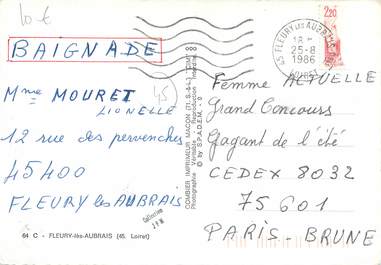 10 €
BAIGNADE
Mme MOURET
LIONELLE
45
12 rue des pervenches
45400
FLEURY les AUBRAIS
Collection
64 C - FLEURY-lès-AUBRAIS (45. Loiret)
COMBIER IMPRIMEUR MACON (71. S.-&-L.) "CIM"
Photographie Véritable - Reproduction Interdite
© by S.P.A.D.E.M. - 0
000
2,20
45 FLEURY LES AUBRAIS
18 H
25-8
1986
LOIRET
Femme ACTUELLE
Grand Concours
Gagant de l'été
CEDEX 8032
75601
PARIS - BRUNE